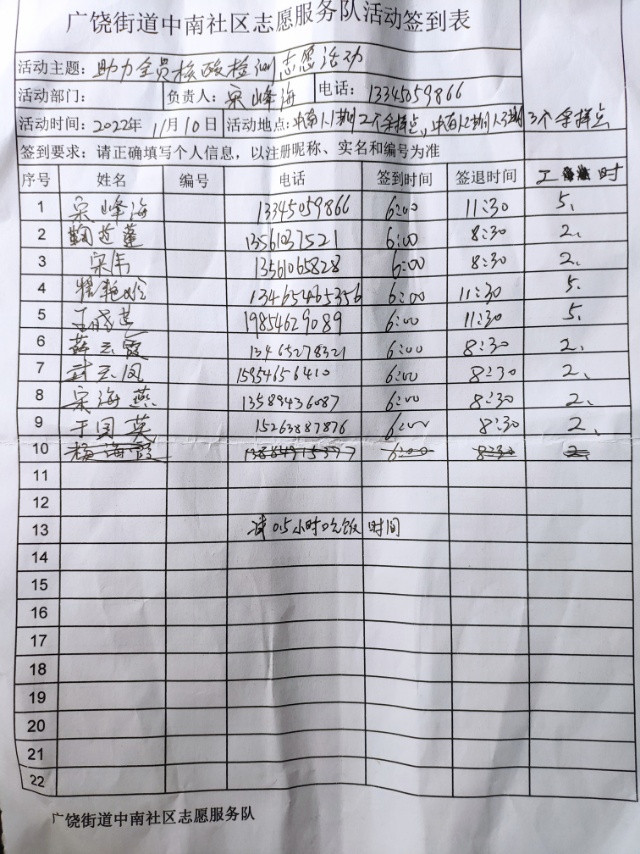 广饶街道中南社区志愿服务队活动签到表
活动主题：助力全员核酸检测志愿活动
活动部门： 负责人：宋峰海 电话：13345059866
活动时间：2022年11月10日 活动地点：中南1.1期2个采样点，中南1.2期1.3期3个采样点
签到要求：请正确填写个人信息，以注册昵称、实名和编号为准
序号 姓名 编号 电话 签到时间 签退时间 工时
1 宋峰海 13345059866 6:00 11:30 5、
2 13561037521 6:00 8:30 2、
3 宋伟 13561065828 6:00 8:30 2、
4 13465465356 6:00 11:30 5、
5 19854629089 6:00 11:30 5、
6 薛云霞 13465278321 6:00 8:30 2、
7 武云凤 15954656410 6:00 8:30 2、
8 宋海燕 13589436087 6:00 8:30 2、
9 于国英 15263887876 6:00 8:30 2、
10 杨海霞 6:00 8:30 2、
11
12
13 减0.5小时吃饭时间
14
15
16
17
18
19
20
21
22
广饶街道中南社区志愿服务队